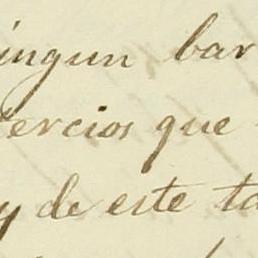 ingun bar
tercios que
y de este ta